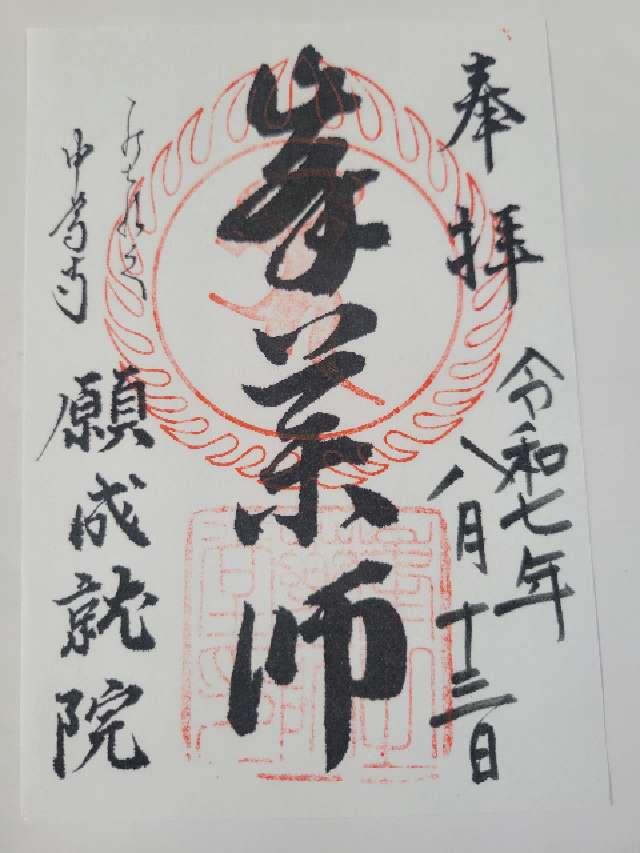 奉拝
令和七年
八月十三日
峯薬師
中尊寺
願成就院